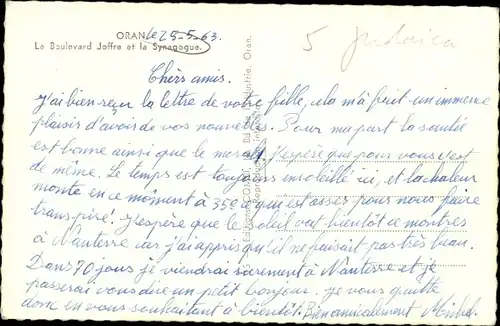 ORAN le 25-5-63
Le Boulevard Joffre et la Synagogue.
5 Judaica
Chers amis.
J'ai bien reçu la lettre de votre fille, cela m'a fait un immense
plaisir d'avoir de vos nouvelles. Pour ma part la santé
est bonne ainsi que le moral, j'espère que pour vous c'est
de même. Le temps est toujours ensoleillé ici, et la chaleur
monte en ce moment à 35° ce qui est assez pour nous faire
transpiré. J'espère que le soleil vat bientôt ce montrer
à Nanterre car j'ai appris qu'il ne faisait pas très beau.
Dans 70 jours je viendrai surement à Nanterre et je
passerai vous dire un petit bonjour. Je vous quitte
donc en vous souhaitant à bientôt. Bien amicalement Michel.